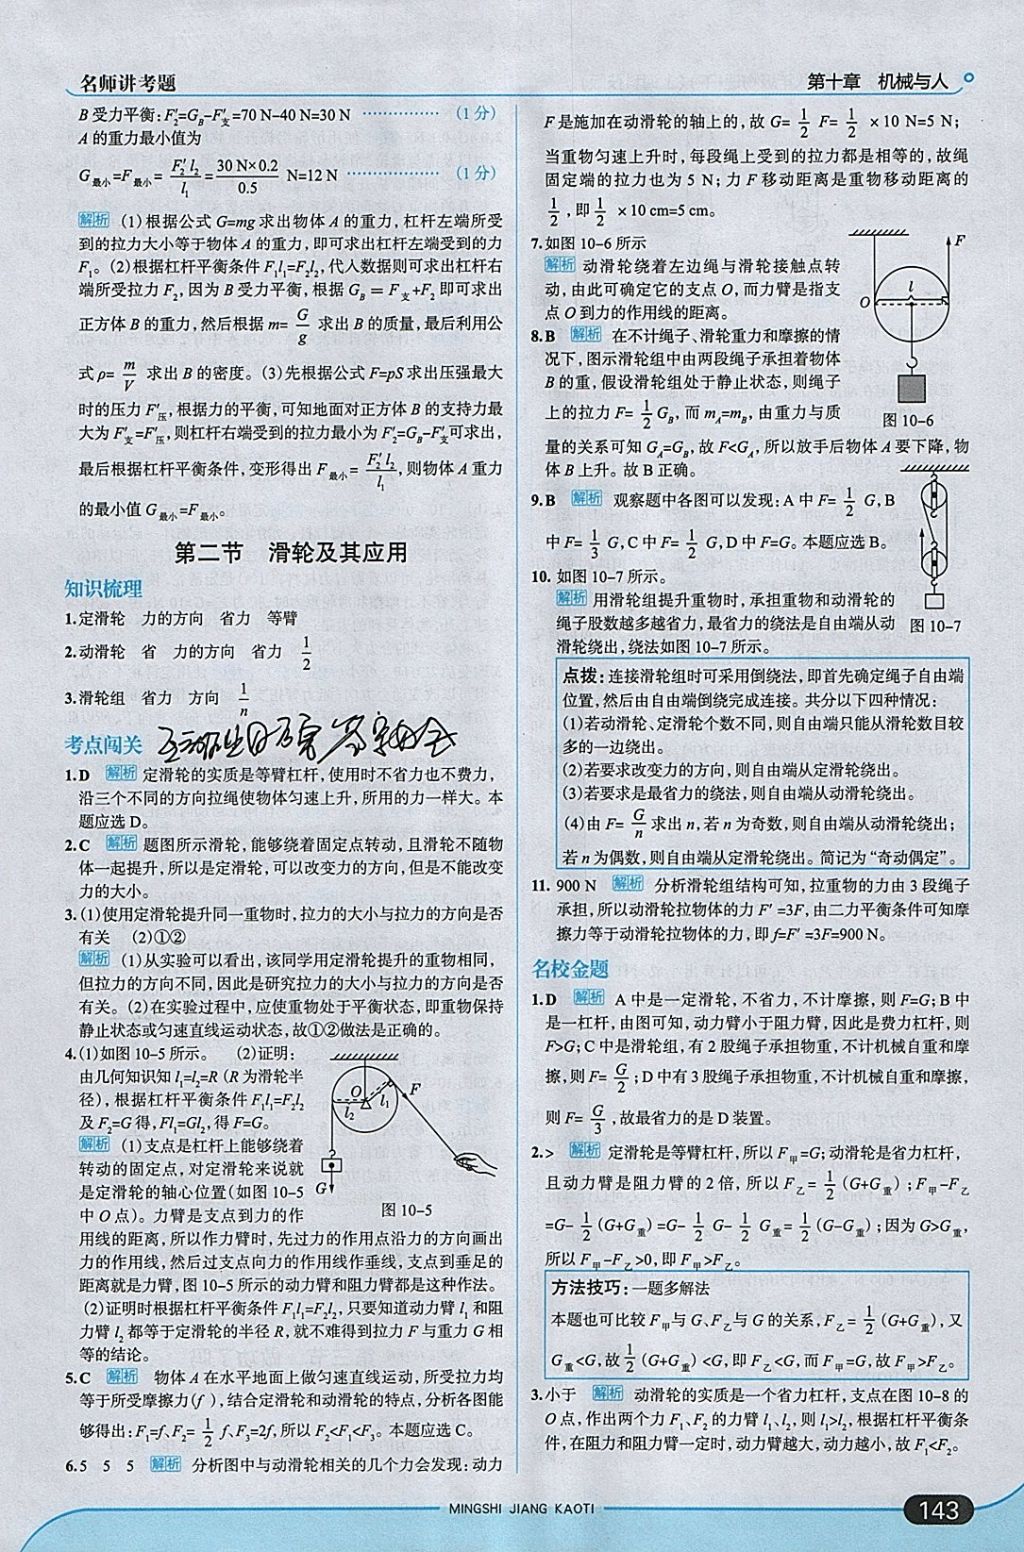 名师讲考题
第十章 机械与人
B受力平衡:F₂′=G_B-F′支=70 N-40 N=30 N ……………(1分)
A的重力最小值为
G最小=F最小=F₂′l₂/l₁=30 N×0.2/0.5 N=12 N ……………(1分)
解析 (1)根据公式G=mg求出物体A的重力,杠杆左端所受
到的拉力大小等于物体A的重力,即可求出杠杆左端受到的力
F₁。(2)根据杠杆平衡条件F₁l₁=F₂l₂,代人数据则可求出杠杆右
端所受拉力F₂,因为B受力平衡,根据G_B=F支+F₂即可求出
正方体B的重力,然后根据m=G/g 求出B的质量,最后利用公
式ρ=m/V 求出B的密度。(3)先根据公式F=pS求出压强最大
时的压力F′压,根据力的平衡,可知地面对正方体B的支持力最
大为F′支=F′压,则杠杆右端受到的拉力最小为F₂′=G_B-F′支可求出,
最后根据杠杆平衡条件,变形得出F最小=F₂′l₂/l₁,则物体A重力
的最小值G最小=F最小。
第二节 滑轮及其应用
知识梳理
1.定滑轮 力的方向 省力 等臂
2.动滑轮 省 力的方向 省力 1/2
3.滑轮组 省力 方向 1/n
考点闯关
1.D 解析 定滑轮的实质是等臂杠杆,使用时不省力也不费力,
沿三个不同的方向拉绳使物体匀速上升,所用的力一样大。本
题应选D。
2.C 解析 题图所示滑轮,能够绕着固定点转动,且滑轮不随物
体一起提升,所以是定滑轮,可以改变力的方向,但是不能改变
力的大小。
3.(1)使用定滑轮提升同一重物时,拉力的大小与拉力的方向是否
有关 (2)①②
解析 (1)从实验可以看出,该同学用定滑轮提升的重物相同,
但拉力的方向不同,因此是研究拉力的大小与拉力的方向是否
有关。(2)在实验过程中,应使重物处于平衡状态,即重物保持
静止状态或匀速直线运动状态,故①②做法是正确的。
4.(1)如图10-5所示。 (2)证明:
由几何知识知l₁=l₂=R(R为滑轮半
径),根据杠杆平衡条件F₁l₁=F₂l₂
及F₂=G得,Fl₁=Gl₂,得F=G。
解析 (1)支点是杠杆上能够绕着
转动的固定点,对定滑轮来说就
是定滑轮的轴心位置(如图10-5
中O点)。力臂是支点到力的作
用线的距离,所以作力臂时,先过力的作用点沿力的方向画出
力的作用线,然后过支点向力的作用线作垂线,支点到垂足的
距离就是力臂,图10-5所示的动力臂和阻力臂都是这种作法。
(2)证明时根据杠杆平衡条件F₁l₁=F₂l₂,只要知道动力臂l₁和阻
力臂l₂都等于定滑轮的半径R,就不难得到拉力F与重力G相
等的结论。
O
F
l₁
l₂
G
图10-5
5.C 解析 物体A在水平地面上做匀速直线运动,所受拉力均
等于所受摩擦力(f),结合定滑轮和动滑轮的特点,分析各图能
够得出:F₁=f、F₂=1/2 f、F₃=2f,所以F₂<F₁<F₃。本题应选C。
6.5 5 5 解析 分析图中与动滑轮相关的几个力会发现:动力
F是施加在动滑轮的轴上的,故G=1/2 F=1/2 ×10 N=5 N;
当重物匀速上升时,每段绳上受到的拉力都是相等的,故绳
固定端的拉力也为5 N;力F移动距离是重物移动距离的
1/2,即1/2 ×10 cm=5 cm。
7.如图10-6所示
解析 动滑轮绕着左边绳与滑轮接触点转
动,由此可确定它的支点O,而力臂是指支
点O到力的作用线的距离。
F
O
l
图10-6
8.B 解析 在不计绳子、滑轮重力和摩擦的情
况下,图示滑轮组中由两段绳子承担着物体
B的重,假设滑轮组处于静止状态,则绳子
上的拉力F=1/2 G_B,而m_A=m_B,由重力与质
量的关系可知G_A=G_B,故F<G_A,所以放手后物体A要下降,物
体B上升。故B正确。
9.B 解析 观察题中各图可以发现:A中F=1/2 G,B
中F=1/3 G,C中F=1/2 G,D中F=G。本题应选B。
10.如图10-7所示。
解析 用滑轮组提升重物时,承担重物和动滑轮的
绳子股数越多越省力,最省力的绕法是自由端从动
滑轮绕出,绕法如图10-7所示。
图10-7
点拨:连接滑轮组时可采用倒绕法,即首先确定绳子自由端
位置,然后由自由端倒绕完成连接。共分以下四种情况:
(1)若动滑轮、定滑轮个数不同,则自由端只能从滑轮数目较
多的一边绕出。
(2)若要求改变力的方向,则自由端从定滑轮绕出。
(3)若要求是最省力的绕法,则自由端从动滑轮绕出。
(4)由F=G/n求出n,若n为奇数,则自由端从动滑轮绕出;
若n为偶数,则自由端从定滑轮绕出。简记为“奇动偶定”。
11.900 N 解析 分析滑轮组结构可知,拉重物的力由3段绳子
承担,所以动滑轮拉物体的力F′=3F,由二力平衡条件可知摩
擦力等于动滑轮拉物体的力,即f=F′=3F=900 N。
名校金题
1.D 解析 A中是一定滑轮,不省力,不计摩擦,则F=G;B中
是一杠杆,由图可知,动力臂小于阻力臂,因此是费力杠杆,则
F>G;C中是滑轮组,有2股绳子承担物重,不计机械自重和摩
擦,则F=G/2;D中有3股绳子承担物重,不计机械自重和摩擦,
则F=G/3,故最省力的是D装置。
2.> 解析 定滑轮是等臂杠杆,所以F甲=G;动滑轮是省力杠杆,
且动力臂是阻力臂的2倍,所以F乙=1/2(G+G重);F甲-F乙
=G-1/2(G+G重)=G-1/2 G-1/2 G重=1/2(G-G重);因为G>G重,
所以F甲-F乙>0,即F甲>F乙。
方法技巧:一题多解法
本题也可比较F甲与G、F乙与G的关系,F乙=1/2(G+G重),又
G重<G,故1/2(G+G重)<G,即F乙<G,而F甲=G,故F甲>F乙。
3.小于 解析 动滑轮的实质是一个省力杠杆,支点在图10-8的
O点,作出两个力F₁、F₂的力臂l₁、l₂,则l₁>l₂,根据杠杆平衡条
件,在阻力和阻力臂一定时,动力臂越大,动力越小,故F₁<F₂。
MINGSHI JIANG KAOTI
143